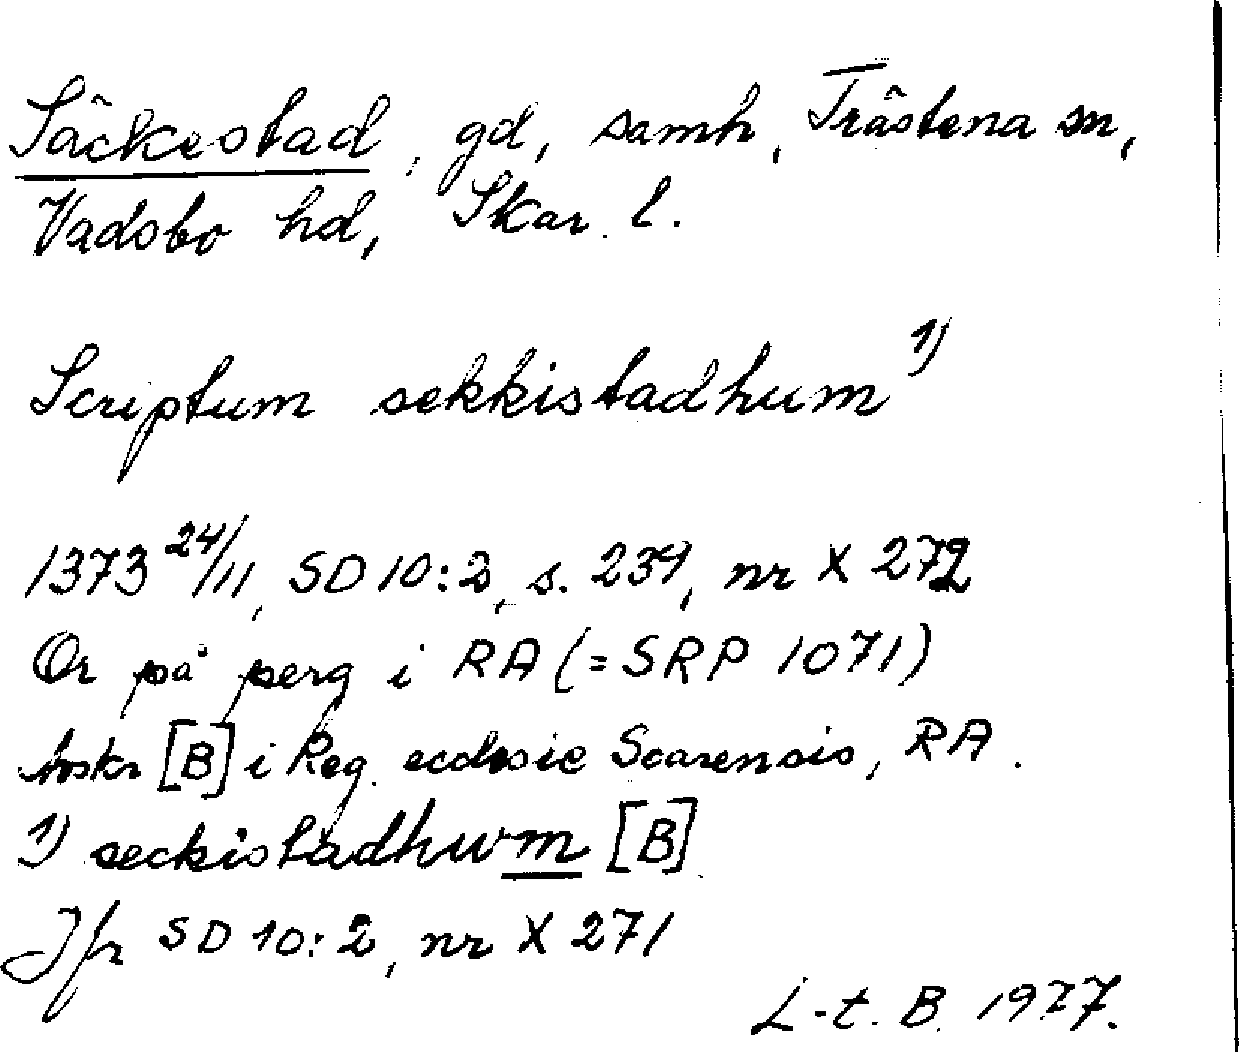 Säckestad, gd, samh, Trästena sn,
Vadsbo hd, Skar. l.
Scriptum sekkistadhum 1)
1373 24/11, SD 10:2, s. 239, nr X 272
Or på perg i RA (=SRP 1071)
Avskr [B] i Reg. ecclesie Scarensis, RA.
1) seckistadhwm [B]
Jfr SD 10:2, nr X 271
L-t. B. 1977.